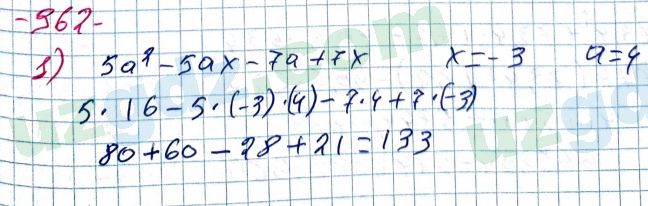 -962-
1) 5a² - 5ax - 7a + 7x x = -3 a = 4
5·16 - 5·(-3)·(4) - 7·4 + 7·(-3)
80 + 60 - 28 + 21 = 133